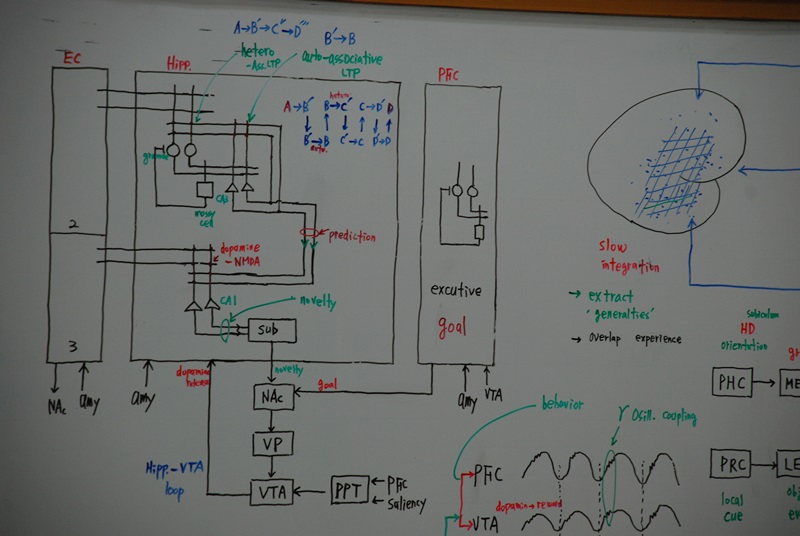 A→B'→C''→D'''
B'→B
EC
Hipp.
hetero
-Ass. LTP
auto-associative
LTP
PFC
hetero.
A→B' B→C' C→D' D
B'→B C'→C D'→D
auto.
granule
CA3
mossy
cell
prediction
2
dopamine
-NMDA
CA1
novelty
Sub
3
excutive
goal
slow
integration
→ extract
'generalties'
→ overlap experience
subiculum
HD
orientation
PHC
ME
NAc
amy
amy
dopamine
novelty
goal
NAc
amy
VTA
VP
Hipp.-VTA
loop
VTA
PPT
PFC
saliency
behavior
γ Osill. coupling
PFC
dopamin→reward
VTA
PRC
LE
local
cue
obj
ev